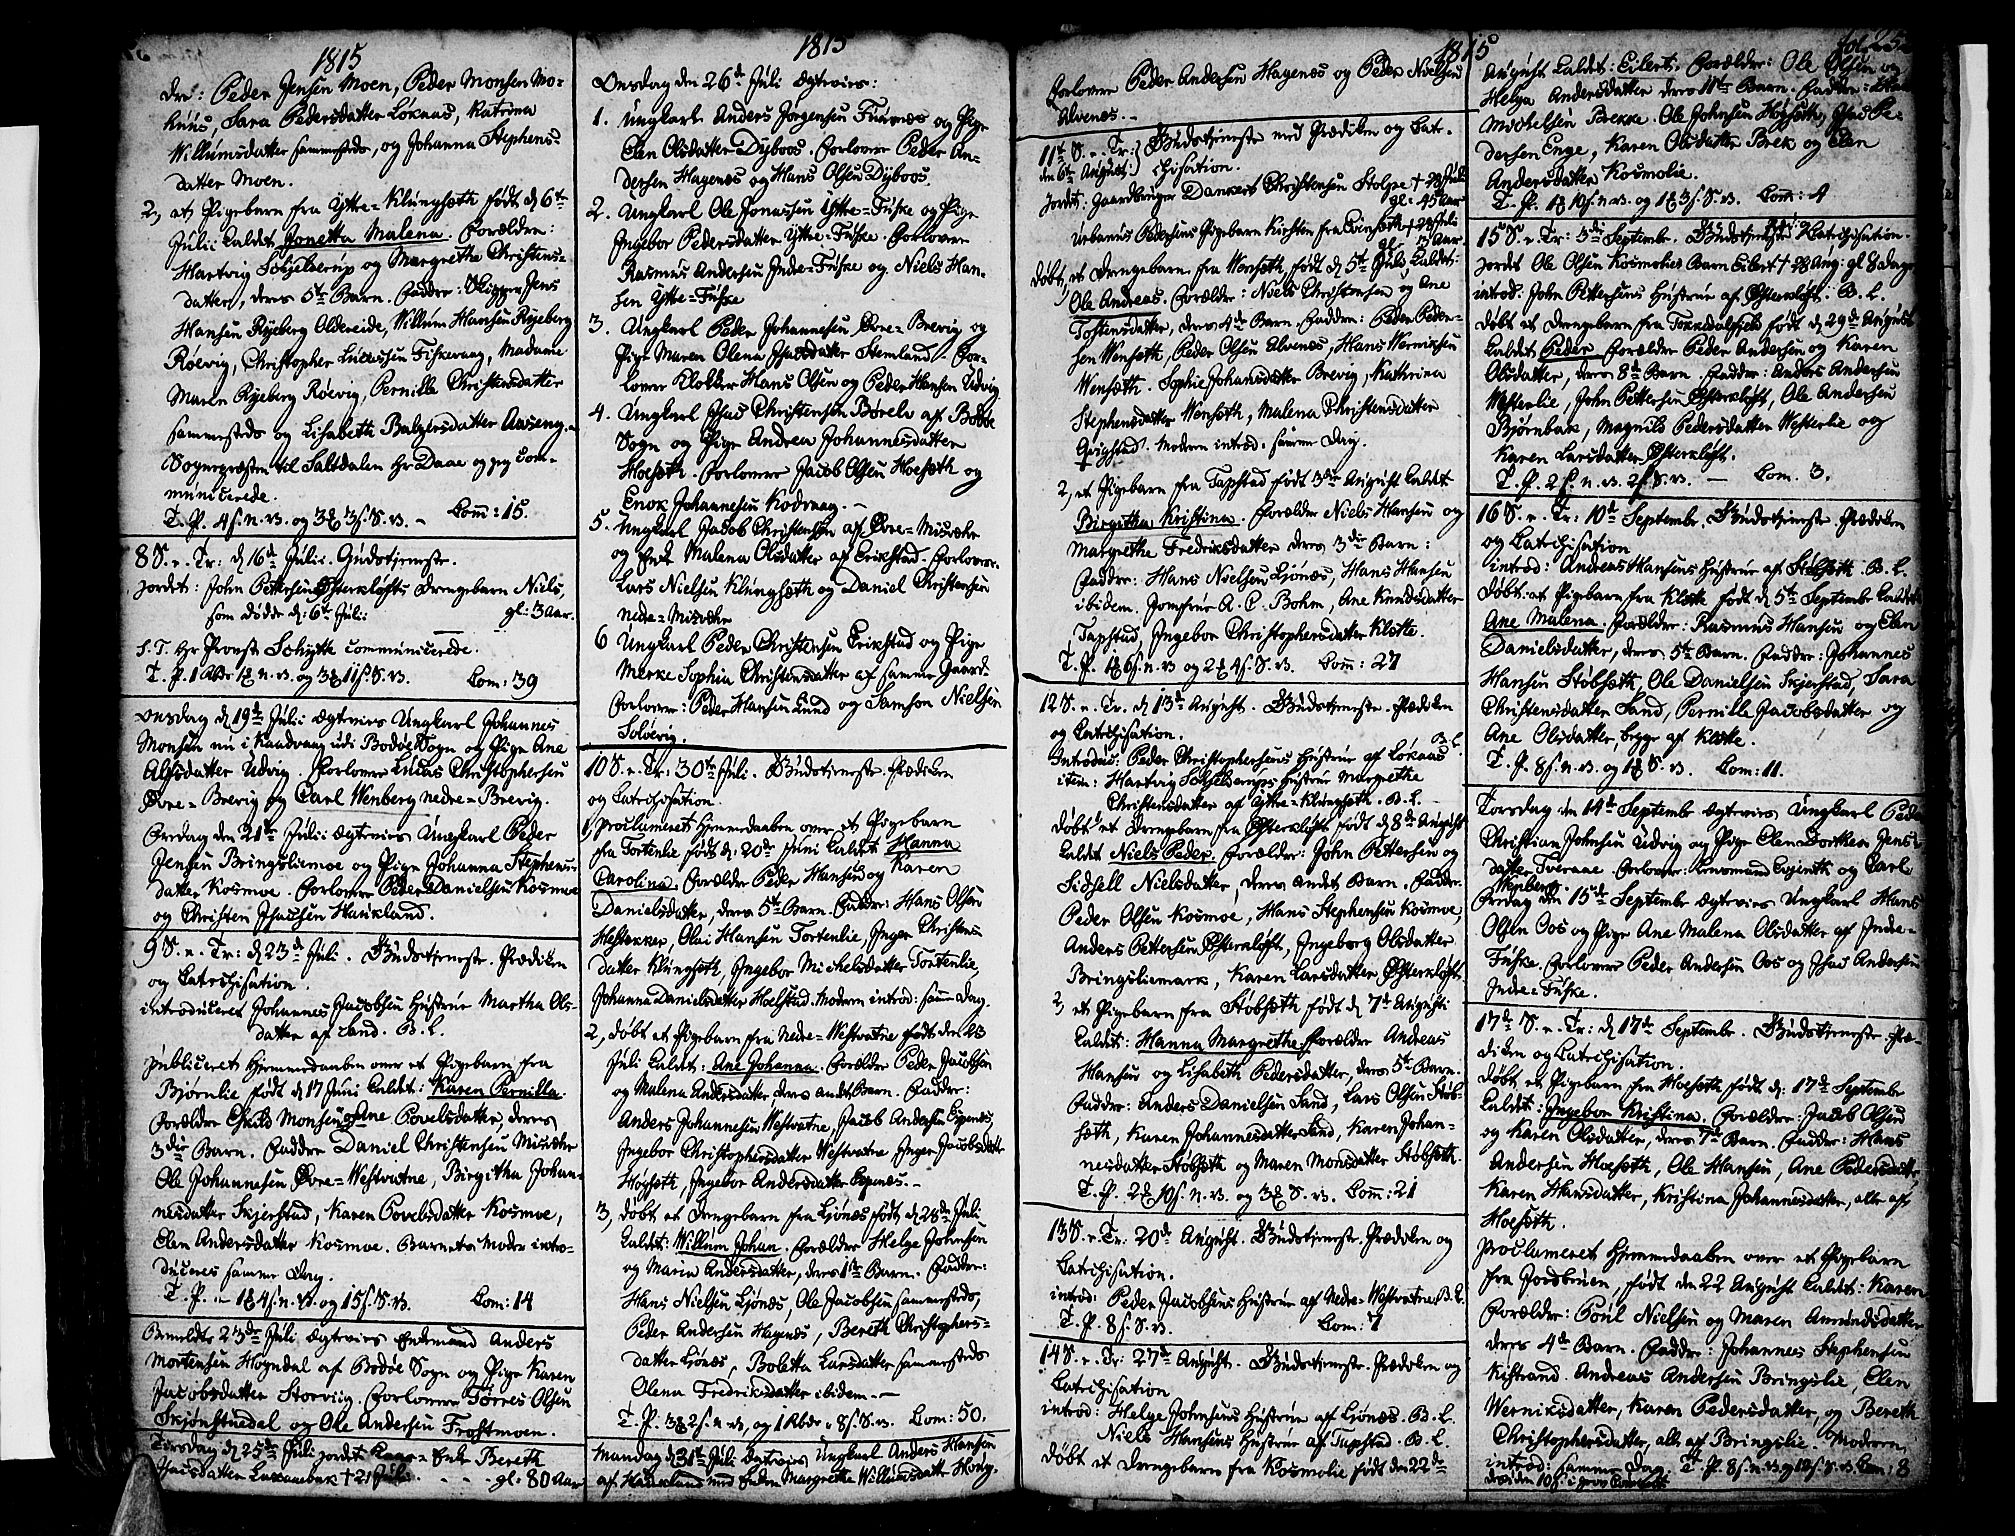 1815
dre: Peder Jensen Moen, Peder Monsen Mo-
huus, Sara Pedersdatter Løkaas, Katrina
Willumsdatter sammesteds, og Johanna Stephens-
datter Moen.
2, et Pigebarn fra Ytte-Klungsæth født d 6te
Julii kaldet Jonetta Malena. Forældre:
Hartvig Schjelderup og Margrethe Christens-
datter, deres 5te Barn. Faddre: Skipper Jens
Hansen Ryeberg Oldereide, Willum Hansen Ryeberg
Røevig, Christopher Lucassen Fiskevaag, Madame
Maren Ryeberg Røevig, Pernille Christensdatter
sammesteds og Lisabeth Baltzersdatter Aaseng.-
Sognepræsten til Saltdalen Hr Daae og jeg com-
municerede.
T. P. 4s. n. v. og 3# 3s. S. v. - Com: 15.
8 S. e. Tr: d 16de Julii. Gudstjeneste.
jordet: John Pettersen Østerkløfts Drengebarn Niels,
som døde d: 6te Julii gl: 3 Aar.
S. T. Hr Provst Schytte communicerede.
T. P. 1 Rbdr 1# n. v. og 3# 11s. S. v. Com: 39
Onsdag d 19de Julii ægtevies Ungkarl Johannes
Monsen nu i Kaadvaag udi Bodøe Sogn og Pige Ane
Alfsdatter Udvig. Forlovere Lucas Christophersen
Øvre-Brevig og Carl Wenberg nedre-Brevig.
Fredag den 21de Julii ægtevies Ungkarl Peder
Jensen Bringsliemoe og Pige Johanna Stephens-
datter Kosmoe. Forlovere Peder Danielsen Kosmoe
og Christen Isacsen Haukland.
9 S. e. Tr: d 23de Juli. Gudstjeneste. Prædiken
og Catechisation.
introduceret Johannes Jacobsen Hustrue Martha Ols-
datter af Sand. B. L.
publiceret Hjemmedaaben over et Pigebarn fra
Bjørnlie født d 17 Juni kaldet: Karen Pernilla
Forældre Eskild Monsen og Ane Povelsdatter, deres
3die Barn. Faddre Daniel Christensen Misvær
Ole Johannesen Øvre-Westvatne, Birgitha Johan-
nesdatter Skjerstad, Karen Povelsdatter Kosmoe,
Elen Andersdatter Kosmoe. Barnets Moder intro-
duceres samme Dag.
T. P. - 1# 4s. n. v. og 15s. S. v. Com: 14
Bemeldte 23de Juli ægtevies Enkemand Anders
Mortensen Høgndal af Bodøe Sogn og Pige Karen
Jacobsdatter Storviig. Forlovere Torres Olsen
Skjønstuedal og Ole Andersen Frostmoen.
Tirsdag d 25de Juli jordet Enke Bereth
Isacsdatter † 21 Juli - - gl: 80 Aar
1815
Onsdag den 26de Juli ægtevies:
1. Ungkarl Anders Jørgensen Fuevnes og Pige
Elen Olsdatter Dyboes. Forlovere Peder An-
dersen Hagenæs og Hans Olsen Dyboos.
2. Ungkarl Ole Jonassen Ytte-Fuske og Pige
Ingebor Pedersdatter Ytte-Fuske. Forlovere
Rasmus Andersen Inde-Fuske og Niels Han-
sen Ytte-Fuske
3. Ungkarl Peder Johannesen Øvre-Brevig og
Pige Maren Olena Isacsdatter Stemland. For-
lovere Klokker Hans Olsen og Peder Hansen Udvig
4. Ungkarl Isac Christensen Børelv af Bodøe
Sogn og Pige Andrea Johannesdatter
Hoesæth. Forlovere Jacob Olsen Hoesæth og
Enok Johannesen Kodvaag. -
5. Ungkarl Jacob Christensen af Øvre-Misvær
og Enke Malena Olsdatter af Erikstad. Forlovere
Lars Nielsen Klungsæth og Daniel Christensen
nedre-Misvær
6 Ungkarl Peder Christensen Erikstad og Pige
Merke Sophia Christensdatter af samme Gaard
Forlovere: Peder Hansen Lund og Samson Nielsen
Solvevig.
10 S. e. Tr: 30te Juli. Gudstjeneste. Prædiken
og Catechisation.
1, proclameret Hjemmedaaben over et Pigebarn
fra Tortenlie født d. 20de Juni kaldet Hanna
Carolina. Forældre Peder Hansen og Karen
Danielsdatter, deres 5te Barn. Faddre: Hans Olsen
Hestekker, Olai Hansen Tortenlie, Inger Christens
datter Klungseth, Ingebor Michelsdatter Tortenlie,
Johanna Danielsdatter Hoelstad. Modern introd: samme Dag.
2, døbt et Pigebarn fra Nedre-Westvatne født den 23
Juli kaldet: Ane Johanna. Forældre Peder Jacobsen
og Malena Andersdatter deres andet Barn. Faddre:
Anders Johannesen Westvatne, Jacob Andersen Espenes,
Ingebor Christophersdatter Westvatne Inger Jacobsdatter
Høgseth, Ingebor Andersdatter Espenes. -
3, døbt et Drengebarn fra Ljønes født d 28de Juli
kaldet: Willum Johan. Forældre Helge Johnsen
og Maria Andersdatter, deres 1ste Barn. Faddre:
Hans Nielsen Ljønes, Ole Jacobsen sammesteds,
Peder Andersen Hagenes, Bereth Christophers-
datter Ljønes, Boletta Larsdatter sammesteds
Olena Fredriksdatter ibidem. -
T. P. 3# 2s. n. v., og 1 Rbdr - 8s. S. v. Com: 50.
Mandag d 31te Juli ægtevies Ungkarl Anders Hansen
af Haukland med Enken Margrethe Willumsdatter Høug-
1815
Forlovere Peder Andersen Hagenæs og Peder Nielsen
Alvenes. -
11te S. e. Tr: Gudstjeneste med Prædiken og Cate-
den 6te August chisation.
Jordet: Gaardbruger Dankert Christensen Stolpe † 28 Juli
gl: 45 Aar
Urbanus Pedersens Pigebarn Kirsten fra Evensæth † 28 Juli
gl: 3 Aar.
Døbt, et Drengebarn fra Wensæth, født d 5te Juli kaldet:
Ole Andreas. Forældre: Niels Christensen og Ane
Tostensdatter, deres 4de Barn. Faddre: Peder Peder-
sen Wensæth, Peder Olsen Alvenes, Hans Werniksen
Wensæth. Sophie Johansdatter Brevig, Kathrina
Stephensdatter Wensæth, Malena Christensdatter
Qvigstad. Modern introd: samme Dag.
2, et Pigebarn fra Tapstad født 3de August kaldet
Birgitha Kristina. Forældre Niels Hansen og
Margrethe Fredriksdatter deres 3die Barn:
Faddre: Hans Nielsen Ljønæs, Hans Hansen
ibidem. Jomfrue A. C. Bohm, Ane Knudsdatter
Tapstad, Ingebor Christophersdatter Kløtte.
T. P. 1# 6s. n. v. og 2# 4s. S. v. Com: 27
12 S. e. Tr. d 13de August. Gudstjeneste. Prædiken
og Catechisation.
Introduc: Peder Christophersens Hustrue af Løkaas B. L.
item: Hartvig Schjelderups Hustrue Margrethe
Christensdatter af Ytte-Klungseth. B. L.
Døbt 1 et Drengebarn fra Østerkløft født d 8de August
kaldet Niels Peder. Forældre: John Pettersen og
Sidsell Nielsdatter, deres andet Barn. Faddre:
Peder Olsen Kosmoe, Hans Stephensen Kosmoe,
Anders Pettersen Østerkløft, Ingeborg Olsdatter
Bringsliemark, Karen Larsdatter Østerkløft.
2, et Pigebarn fra Støbsæth født d 7de Augusti
kaldet: Hanna Margrethe. Forældre Andreas
Hansen og Lisabeth Pedersdatter, deres 5te Barn.
Faddre: Anders Danielsen Sand, Lars Olsen Støb-
sæth, Karen Johannesdatter Sand, Karen Johan-
nesdatter Støbseth og Maren Monsdatter Støbseth.
T. P. 2# 10s. n. v. og 3# S. v. Com: 21
13 S. e. Tr: 20de August. Gudstjeneste. Prædiken og
Catechisation.
introd: Peder Jacobsens Hustrue af Nedre-Westvatne B. L.
T. P. 8s. S. v. Com: 7
14 S. e. Tr: 27de August. Gudstjeneste. Prædiken og
Catechisation
introd: Helge Johnsens Hustrue af Ljønes. B. L.
Niels Hansens Hustrue af Tapstad. B. L.
Døbt et Drengebarn fra Kosmolie født den 22de
fol. 25
August kaldet: Eilert. Forældre: Ole Olsen og
Helga Andersdatter deres 11te Barn. Faddre:
Michelsen Brekke. Ole Johnsen Høgseth, Isac Pe-
dersen Enge, Karen Olsdatter Brek og Elen
Andersdatter Kosmolie.
T. P. 1# 10s. n. v. og 1# 3s. S. v. Com: 4
15 S. e. Tr: 3die September. Gudstjeneste. Catechisation.
Jordet Ole Olsen Kosmolies Barn Eilert † 28 Aug: gl 8 dage
introd: John Pettersens Hustrue af Østerkløft. B. L.
Døbt et Drengebarn fra født d 29de August
kaldet Peder Forældre Peder Andersen og Karen
Olsdatter, deres 8de Barn. Faddre: Anders Andersen
Westerlie, John Pettersen Østerkløft, Ole Andersen
Bjørnbak, Magnild Pedersdatter Westerlie og
Karen Larsdatter Østerkløft.
T. P. 2s. n. v. 2s. S. v. - Com. 3.
16 S. e. Tr: 10de September. Gudstjeneste. Prædiken
og Catechisation
introd: Andreas Hansens Hustrue af Støbseth. B. L.
Døbt: et Pigebarn fra Kløtte født d 5te September kaldet
Ane Malena. Forældre: Rasmus Hansen og Elen
Danielsdatter, deres 5te Barn. Faddre: Johannes
Hansen Støbseth, Ole Danielsen Skjerstad, Sara
Christensdatter Sand, Pernille Jacobsdatter og
Ane Olsdatter, begge af Kløtte.
T. P. 8s. n. v. og 1# S. v. Com: 11.
Torsdag den 14de September ægtevies Ungkarl Peder
Christian Johnsen Udvig og Pige Elen Dorthea Jens-
datter Tveraae. Forlovere: og Carl
Wenberg.
Fredag den 15de September ægtevies Ungkarl Hans
Olsen Oos og Pige Ane Malena Olsdatter af Inde-
Fuske. Forlovere Peder Andersen Oos og Isac Andersen
Inde-Fuske.
17de S. e. Tr: d 17de September. Gudstjeneste. Præ-
diken og Catechisation.
Døbt et Pigebarn fra Hoesæth født d: 17de September
kaldet: Ingebor Kristina. Forældre: Jacob Olsen
og Karen Olsdatter, deres 7de Barn. Faddre: Hans
Andersen Hoeseth, Ole Hansen, Ane Pedersdatter,
Karen Hansdatter, Kristina Johannesdatter, alle af
Hoeseth.
proclameret Hjemmedaaben over et Pigebarn
fra Jordbruen, født den 22 August kaldet: Karen
Forældre: Poul Nielsen og Maren Amundsdatter
deres 4de Barn. Faddre: Johannes Stephensen
Kistrand. Andreas Andersen Bringslie, Elen
Werniksdatter, Karen Pedersdatter, og Bereth
Christophersdatter, alle af Bringslie. Modern
introd: samme Dag T. P. 8s. n. v. og 12s. S. v. Com: 8